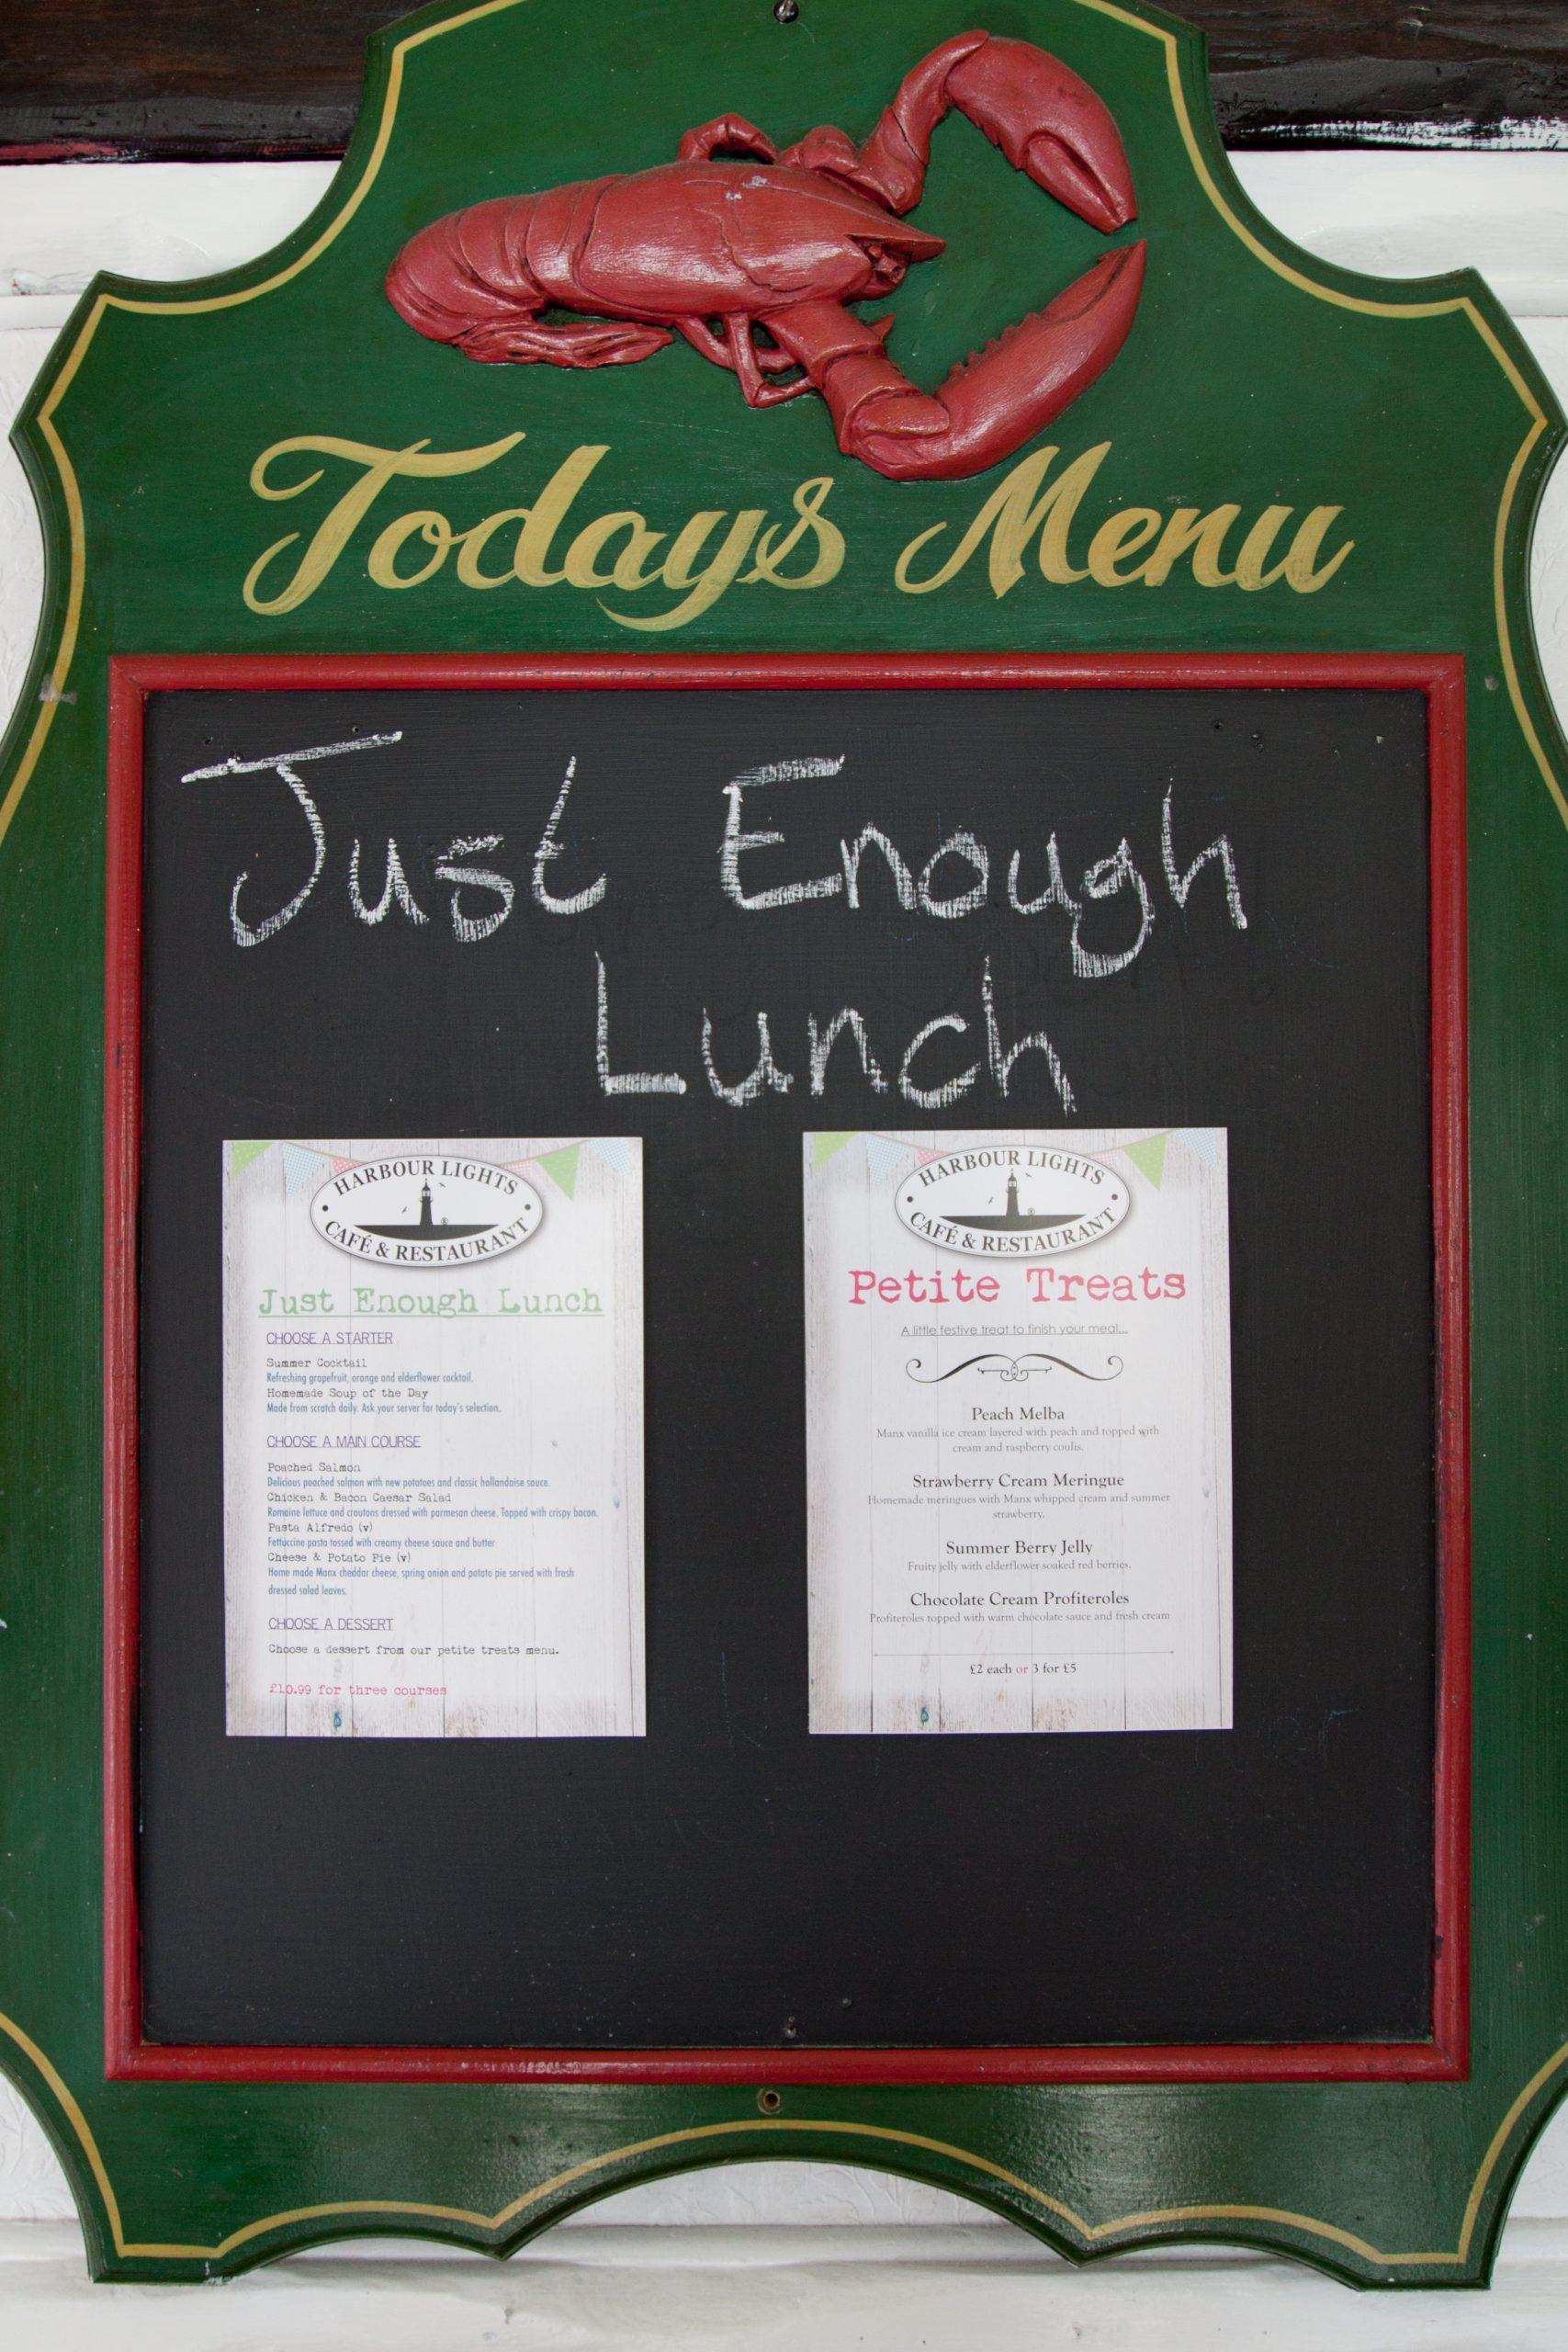 Todays Menu
Just Enough
Lunch
HARBOUR LIGHTS
CAFÉ & RESTAURANT
Just Enough Lunch
CHOOSE A STARTER
Summer Cocktail
Refreshing grapefruit, orange and elderflower cocktail.
Homemade Soup of the Day
Made from scratch daily. Ask your server for today's selection.
CHOOSE A MAIN COURSE
Poached Salmon
Delicious poached salmon with new potatoes and classic hollandaise sauce.
Chicken & Bacon Caesar Salad
Romaine lettuce and croutons dressed with parmesan cheese. Topped with crispy bacon.
Pasta Alfredo (v)
Fettuccine pasta tossed with creamy cheese sauce and butter
Cheese & Potato Pie (v)
Home made Manx cheddar cheese, spring onion and potato pie served with fresh
dressed salad leaves.
CHOOSE A DESSERT
Choose a dessert from our petite treats menu.
£10.99 for three courses
HARBOUR LIGHTS
CAFÉ & RESTAURANT
Petite Treats
A little festive treat to finish your meal...
Peach Melba
Manx vanilla ice cream layered with peach and topped with
cream and raspberry coulis.
Strawberry Cream Meringue
Homemade meringues with Manx whipped cream and summer
strawberry.
Summer Berry Jelly
Fruity jelly with elderflower soaked red berries.
Chocolate Cream Profiteroles
Profiteroles topped with warm chocolate sauce and fresh cream
£2 each or 3 for £5